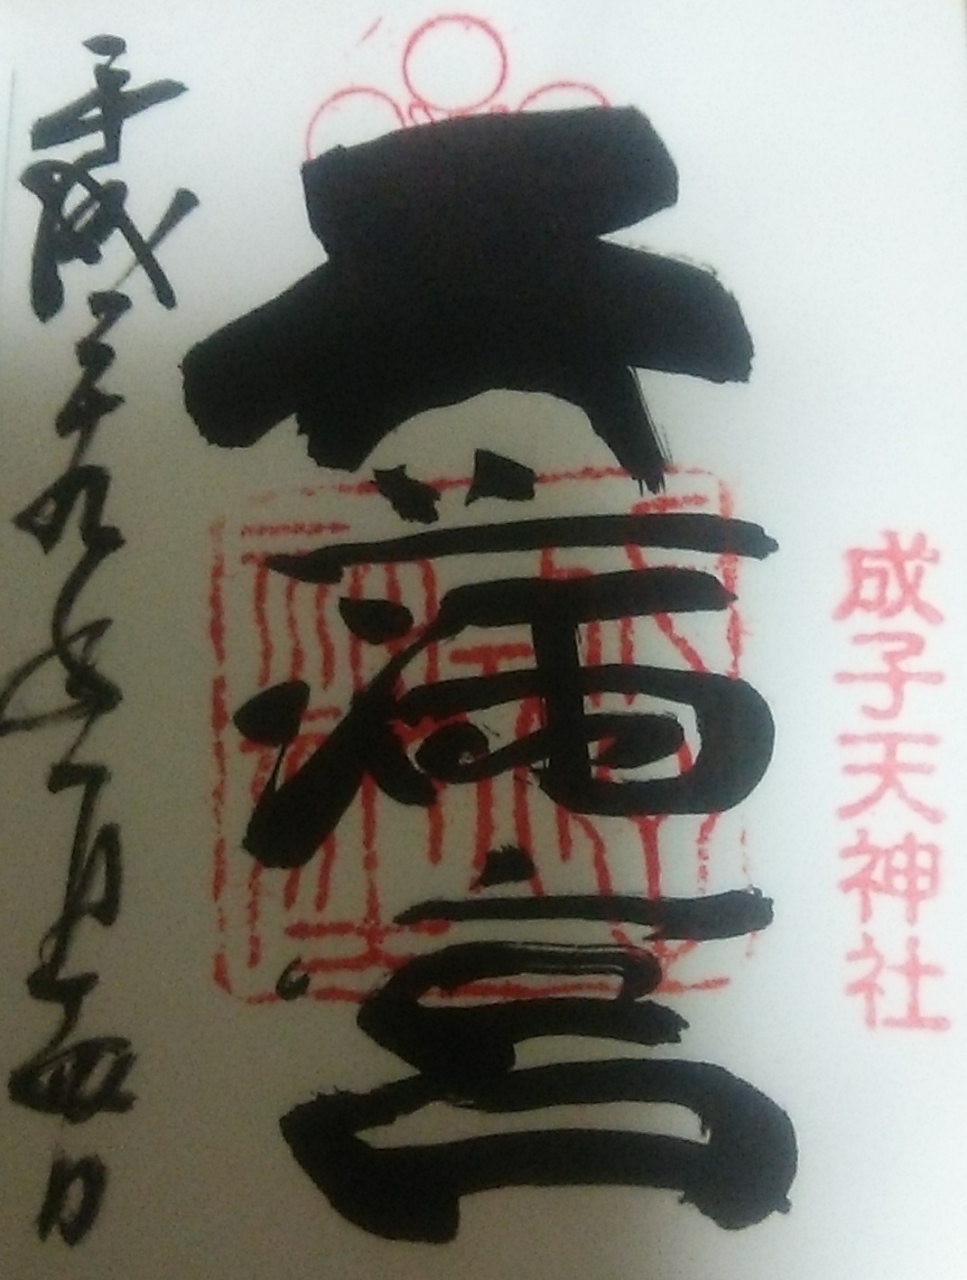 成子天神社
天満宮
平成二十九年一月十四日